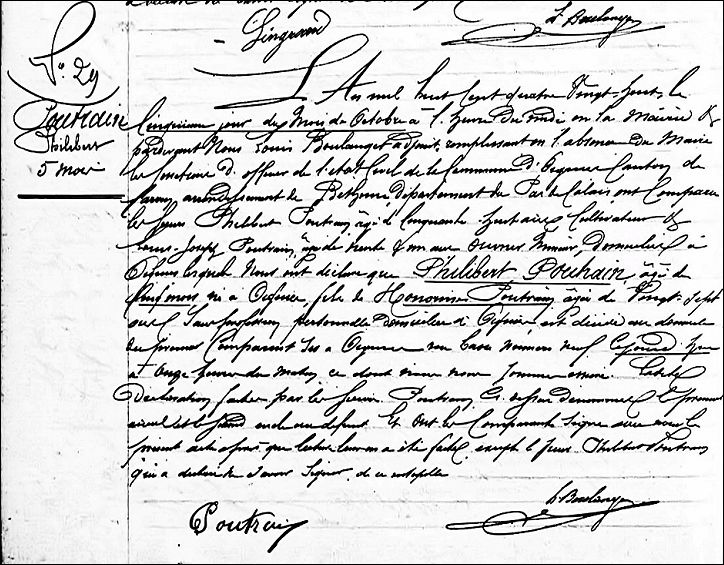 L. Boulanger
N° 29
Poutrain
Philibert
5 mois
L'An mil huit cent quatre Vingt-huit, le
Cinquième jour du Mois de Octobre à l'heure de midi en la Mairie &
pardevant Nous Louis Boulanger adjoint, remplissant en l'absence du Maire
les fonctions d'officier de l'état Civil de la Commune d'Oignies Canton de
arrondissement de Béthune, Département du Pas de Calais, ont Comparu
les sieurs Philibert Poutrain, âgé de Cinquante-huit ans Cultivateur &
Louis-Joseph Poutrain, âgé de trente & un ans ouvrier Mineur, Domiciliés à
Oignies lesquels Nous ont déclaré que Philibert Poutrain, âgé de
mois né à Oignies, fils de Honorine Poutrain âgée de Vingt-sept
ans Sans profession personnelle Domiciliée à Oignies est décédé au domicile
du premier Comparant sis à Oignies rue Basse Numéro Neuf Cejourd'hui
à Onze heures du Matin, ce dont nous nous sommes assuré
Déclaration faite par les sieurs Poutrain dénommés le premier
aieul & le second oncle du défunt Et Ont les Comparants Signé avec nous le
présent acte après que lecture leur en a été faite excepté le sieur Philibert Poutrain
qui a déclaré ne savoir Signer de ce interpellé
Poutrain
L. Boulanger